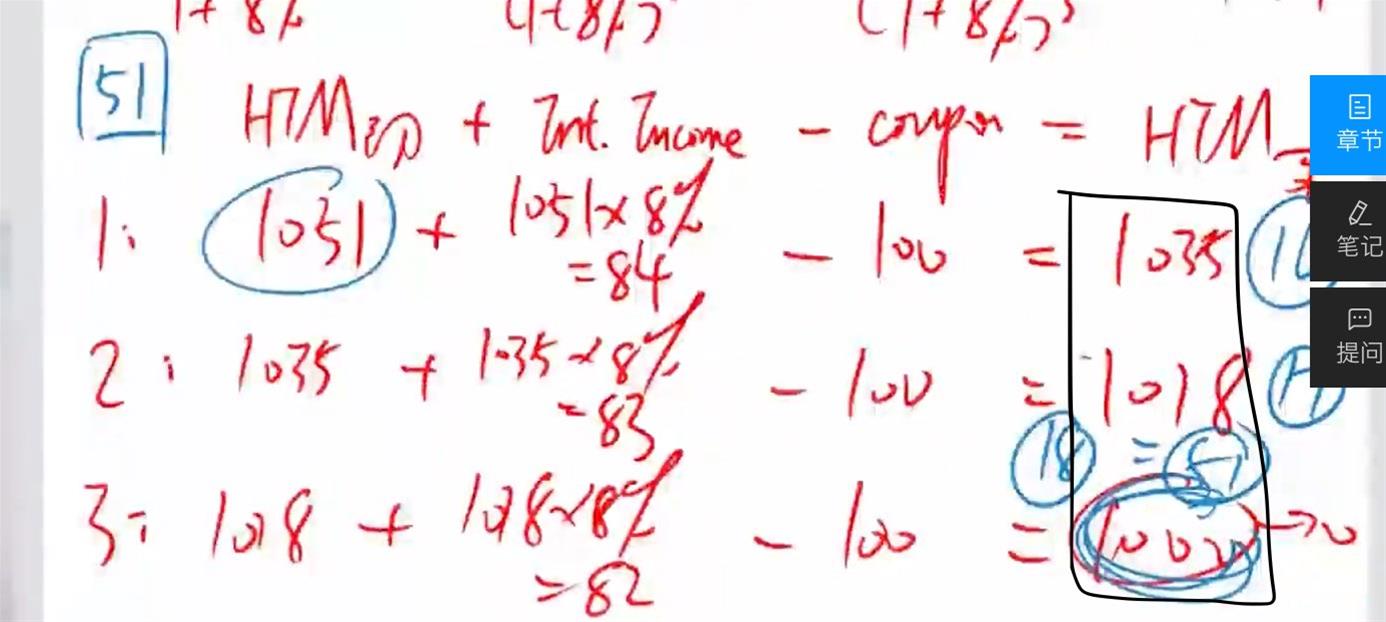 1+8% (1+8%)² (1+8%)³
51
HTM初 + Int. Income - coupon = HTM末
章节
1: 1051 + 1051×8% - 100 = 1035 16
=84
笔记
2: 1035 + 1035×8% - 100 = 1018 17
=83
提问
18 = 51
3: 1018 + 1018×8% - 100 = 1000 → 0
=82